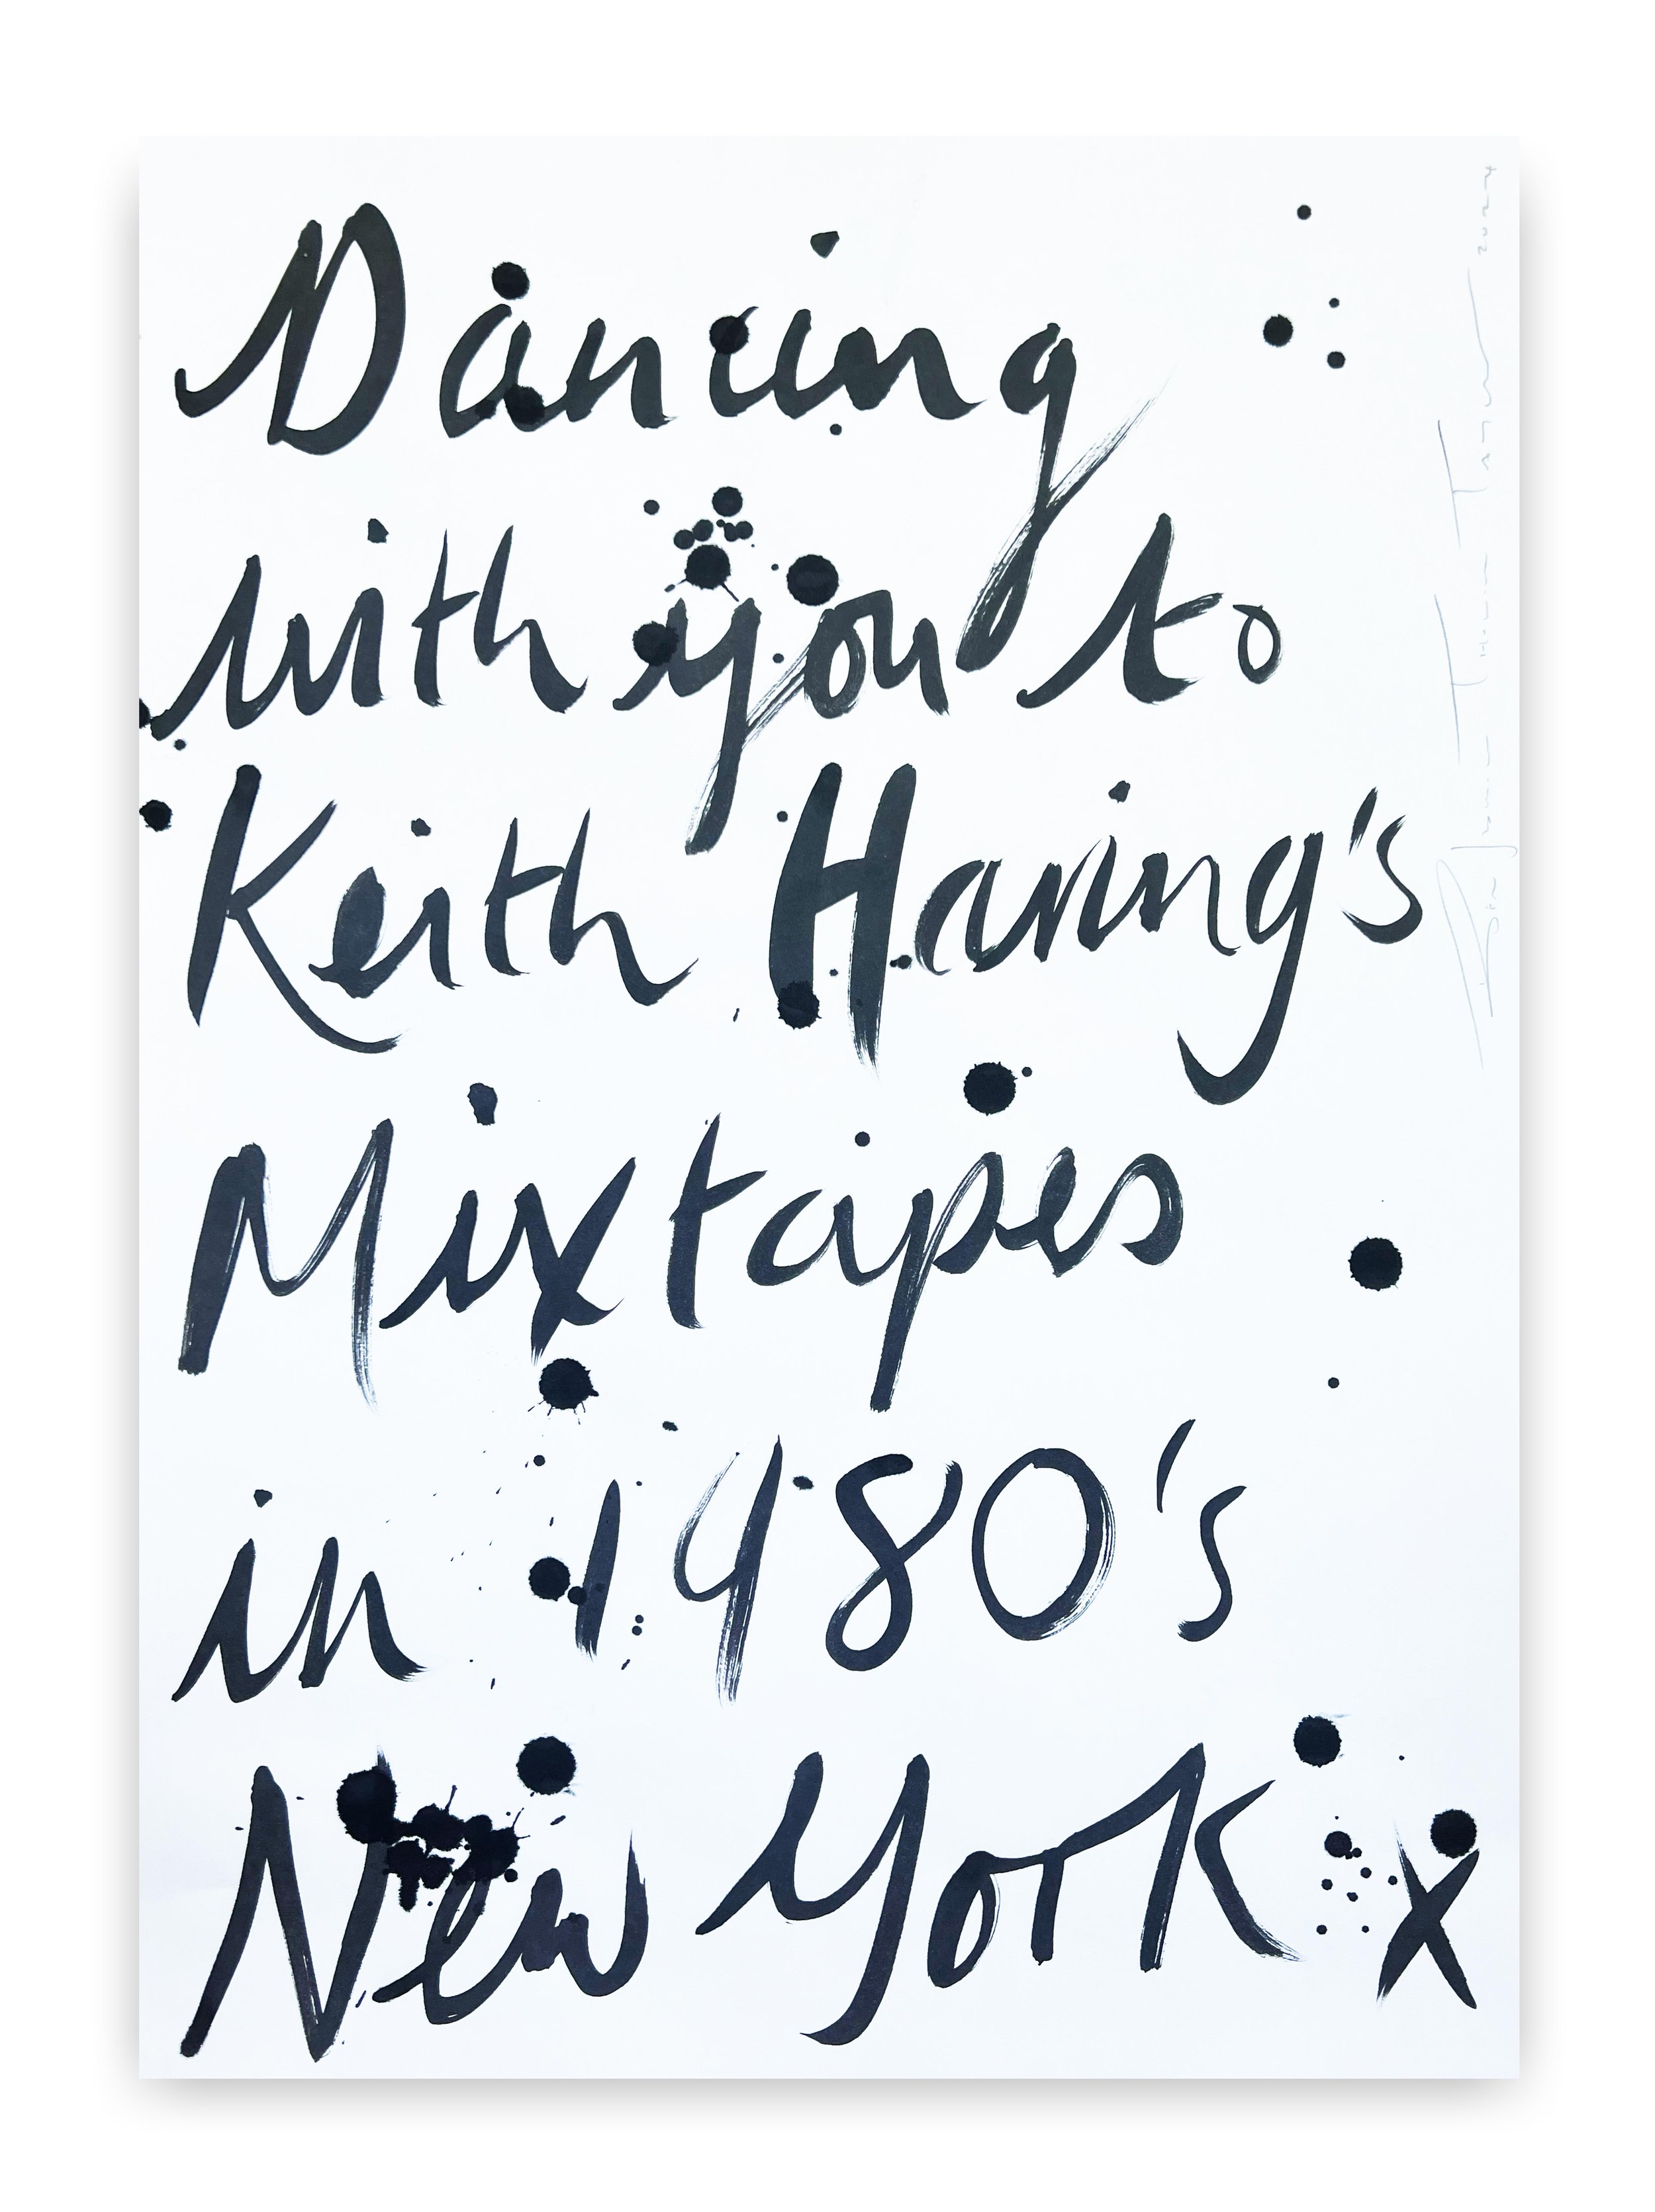 Dancing
with you to
Keith Haring's
Mixtapes
in 1980's
New York x
2024